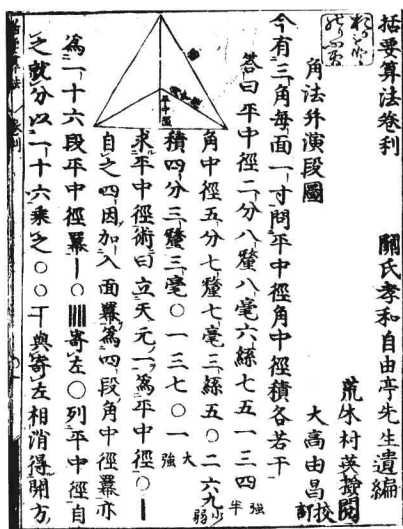 括要算法卷利
關氏孝和自由亭先生遺編
荒木村英撿閱
大高由昌校訂
角法幷演段圖
今有三角每面一寸問平中徑角中徑積各若干
答曰平中徑二分八釐八毫六絲七五一三四強半
角中徑五分七釐七毫三絲五〇二六九少弱
積四分三釐三毫〇一三七〇一大強
求平中徑術曰立天元一爲平中徑〇|
自之四因加入面羃爲四段角中徑羃亦
爲一十六段平中徑羃|〇||||寄左〇列平中徑自
之就分以一十六乘之〇〇丅與寄左相消得開方
面
角中徑
平中徑
括要算法 卷利